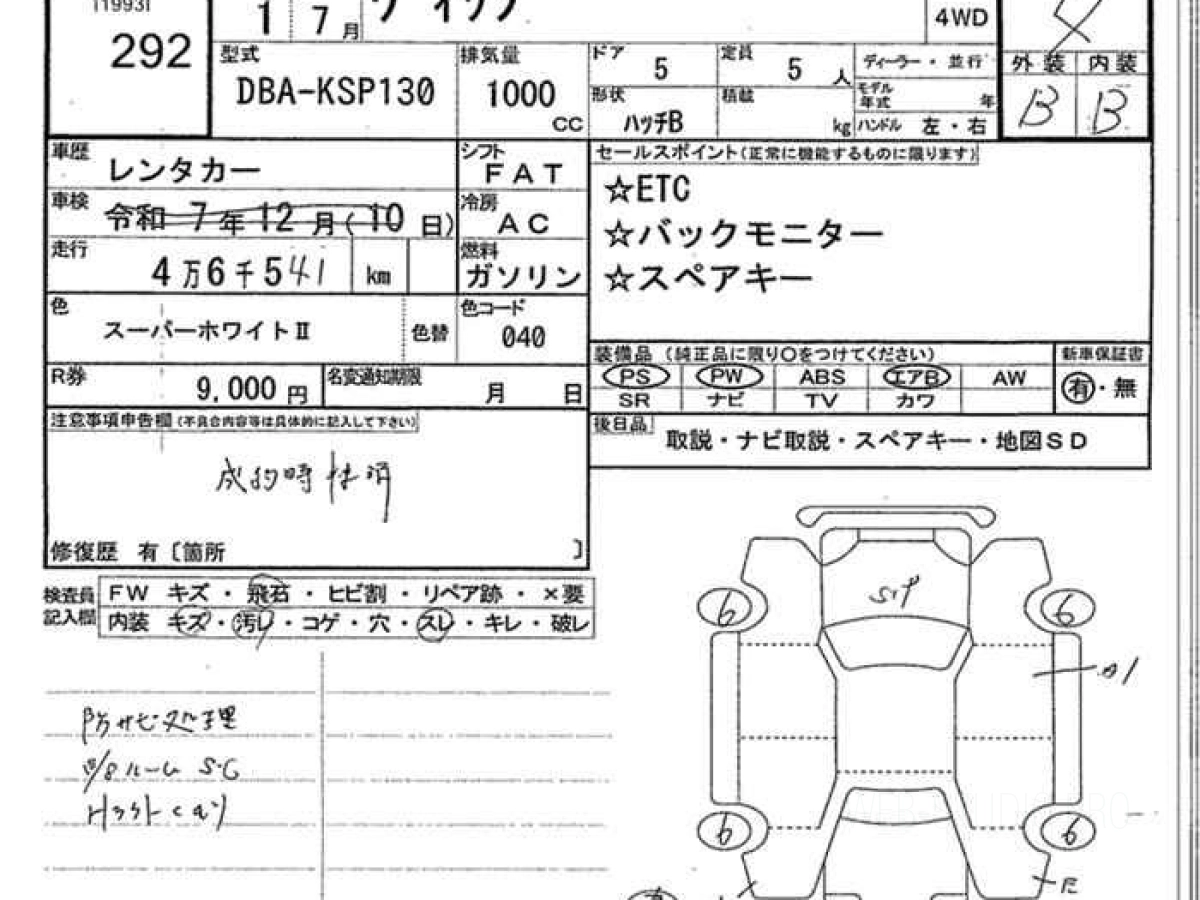 292
1 7 月
4WD
型式
DBA-KSP130
排気量
1000
CC
ドア
5
定員
5 人
形状
ハッチB
積載
kg
ディーラー ・ 並行
モデル
年式
年
ハンドル 左 ・ 右
外装 内装
B B
車歴
レンタカー
シフト
FAT
車検
令和 7 年 12 月 (10 日)
冷房
AC
走行
4 万 6 千 541 km
燃料
ガソリン
色
スーパーホワイトⅡ
色替
色コード
040
R券
9,000 円
名変通知期限
月 日
セールスポイント(正常に機能するものに限ります)
☆ETC
☆バックモニター
☆スペアキー
装備品 (純正品に限り〇をつけてください)
新車保証書
PS PW ABS エアB AW
SR ナビ TV カワ
有 ・ 無
後日品
取説・ナビ取説・スペアキー・地図SD
注意事項申告欄 (不具合内容等は具体的に記入して下さい)
成約時
修復歴 有 〔箇所 〕
検査員
記入欄
FW キズ ・ 飛石 ・ ヒビ割 ・ リペア跡 ・ ×要
内装 キズ ・ 汚レ ・ コゲ ・ 穴 ・ スレ ・ キレ ・ 破レ
防サビ処理
ルーム S・C
6 6
A1
6 6
E